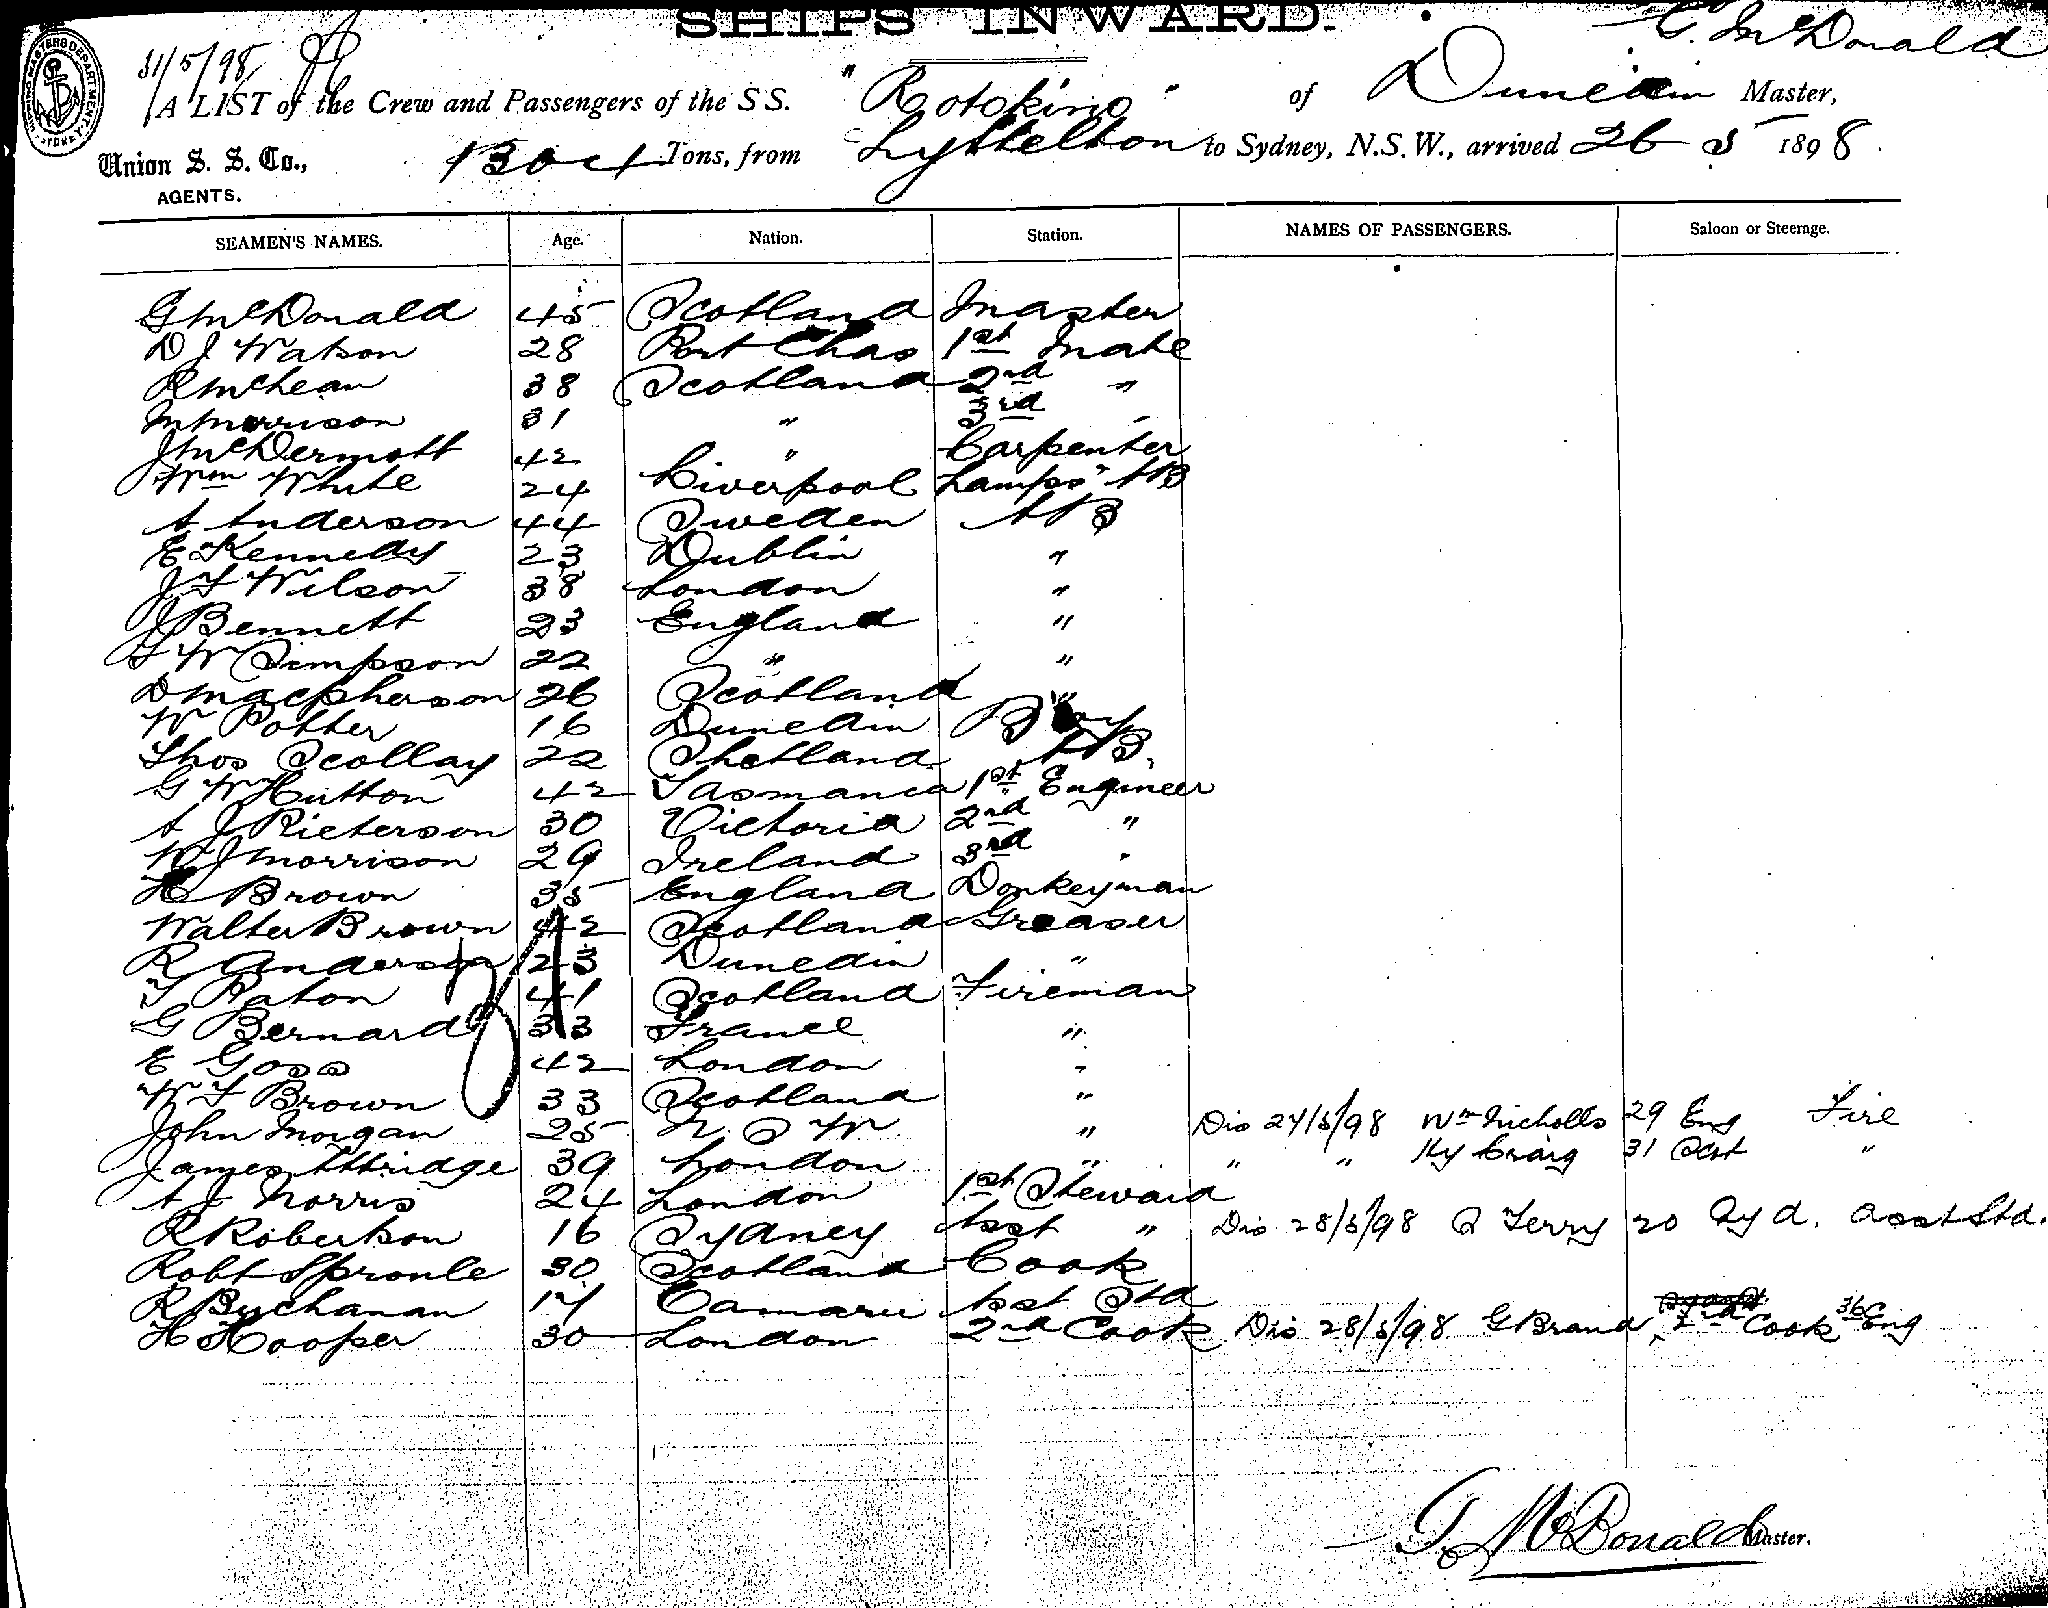 SHIPS INWARD.
31/5/98
G. McDonald
A LIST of the Crew and Passengers of the SS. "Rotokino" of Dunedin Master,
Union S. S. Co., 1304 Tons, from Lyttelton to Sydney, N.S.W., arrived 26 5 1898.
AGENTS.
SEAMEN'S NAMES. Age. Nation. Station. NAMES OF PASSENGERS. Saloon or Steerage.
G McDonald 45 Scotland Master
D J Watson 28 Port Chas 1st Mate
R McLean 38 Scotland 2nd "
M Morrison 31 " 3rd "
J McDermott 42 " Carpenter
Wm White 24 Liverpool Lamps & AB
A Anderson 44 Sweden AB
E Kennedy 23 Dublin "
J F Wilson 38 London "
J Bennett 23 England "
F W Simpson 22 " "
D Macpherson 26 Scotland "
W Potter 16 Dunedin Boy
Thos Scollay 22 Shetland AB.
G W Hutton 42 Tasmania 1st Engineer
A J Rieterson 30 Victoria 2nd "
W J Morrison 29 Ireland 3rd "
H Brown 35 England Donkeyman
Walter Brown 42 Scotland Greaser
R Anderson 23 Dunedin "
T Paton 41 Scotland Fireman
G Bernard 33 France "
E Goss 42 London "
W F Brown 33 Scotland "
John Morgan 25 N S W " Dis 27/5/98 Wm Nicholls 29 Eng Fire
James Attridge 39 London " " " Hy Craig 31 Scot "
A J Norris 24 London 1st Steward
R Robertson 16 Sydney Asst " Dis 28/5/98 S Terry 20 Syd. Asst Std.
Robt Sproule 30 Scotland Cook
R Buchanan 17 Oamaru Asst Std
H Hooper 30 London 2nd Cook Dis 28/5/98 G Brand 2nd Cook 36 Eng
G McDonald Master.